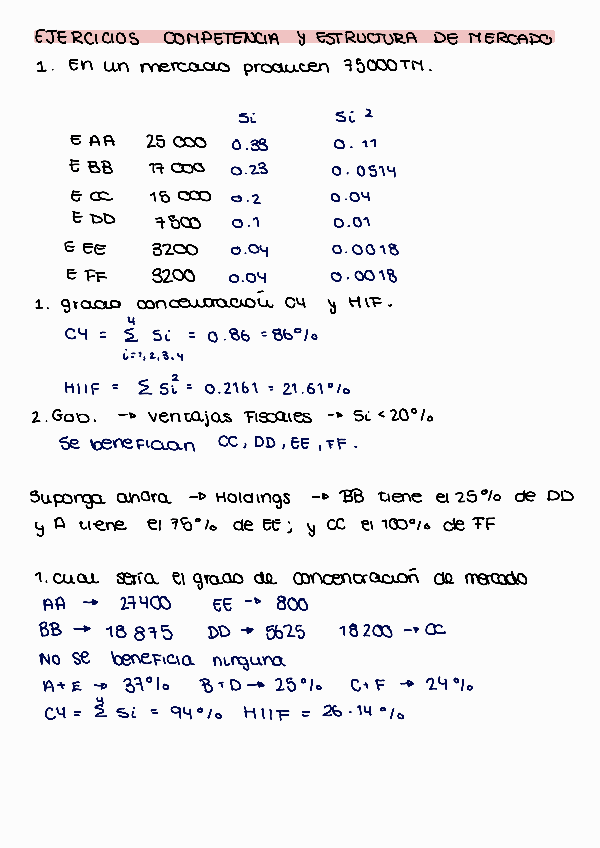 EJERCICIOS COMPETENCIA Y ESTRUCTURA DE MERCADO
1. En un mercado producen 75000TN.
Si Si²
E AA 25 000 0.33 0.11
E BB 17 000 0.23 0.0514
E CC 15 000 0.2 0.04
E DD 7500 0.1 0.01
E EE 3200 0.04 0.0018
E FF 3200 0.04 0.0018
1. grado concentración C4 y HIF.
C4 = Σ Si = 0.86 = 86%
4
i=1,2,3,4
HIIF = Σ Si² = 0.2161 = 21.61%
2. Gob. → ventajas Fiscales → Si < 20%
Se benefician CC, DD, EE, FF.
Suponga ahora → Holdings → BB tiene el 25% de DD
y A tiene el 75% de EE; y CC el 100% de FF
1. cual sería el grado de concencración de mercado
AA → 27400 EE → 800
BB → 18 875 DD → 5625 18200 → CC
No se beneficia ninguna
A+E → 37% B+D → 25% C+F → 24%
C4 = Σ Si = 94% HIIF = 26.14%
4